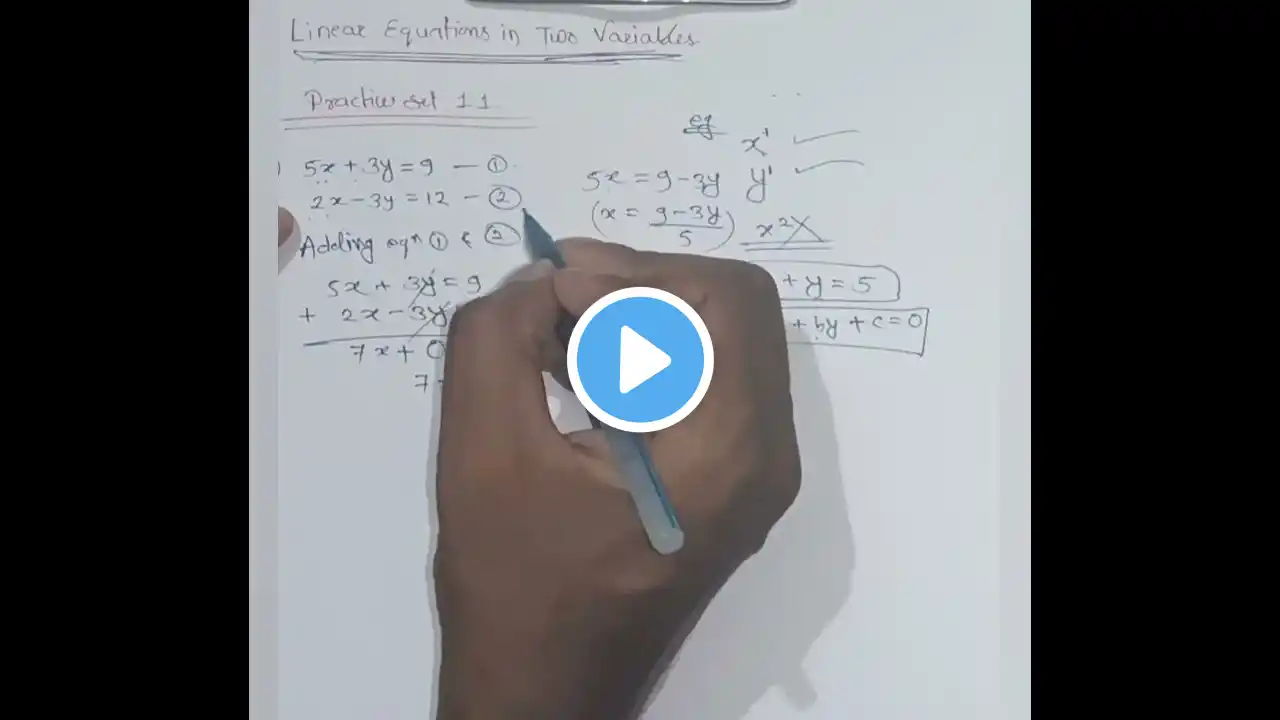 Linear Equations in Two Variables
Practice set 1.1
5x + 3y = 9 — ①
2x - 3y = 12 - ②
Adding eqn ① & ②
5x + 3y = 9
+ 2x - 3y
7x + 0
7
eg
x¹
5x = 9 - 3y y¹
(x = 9 - 3y / 5) x²
+ y = 5
+ by + c = 0